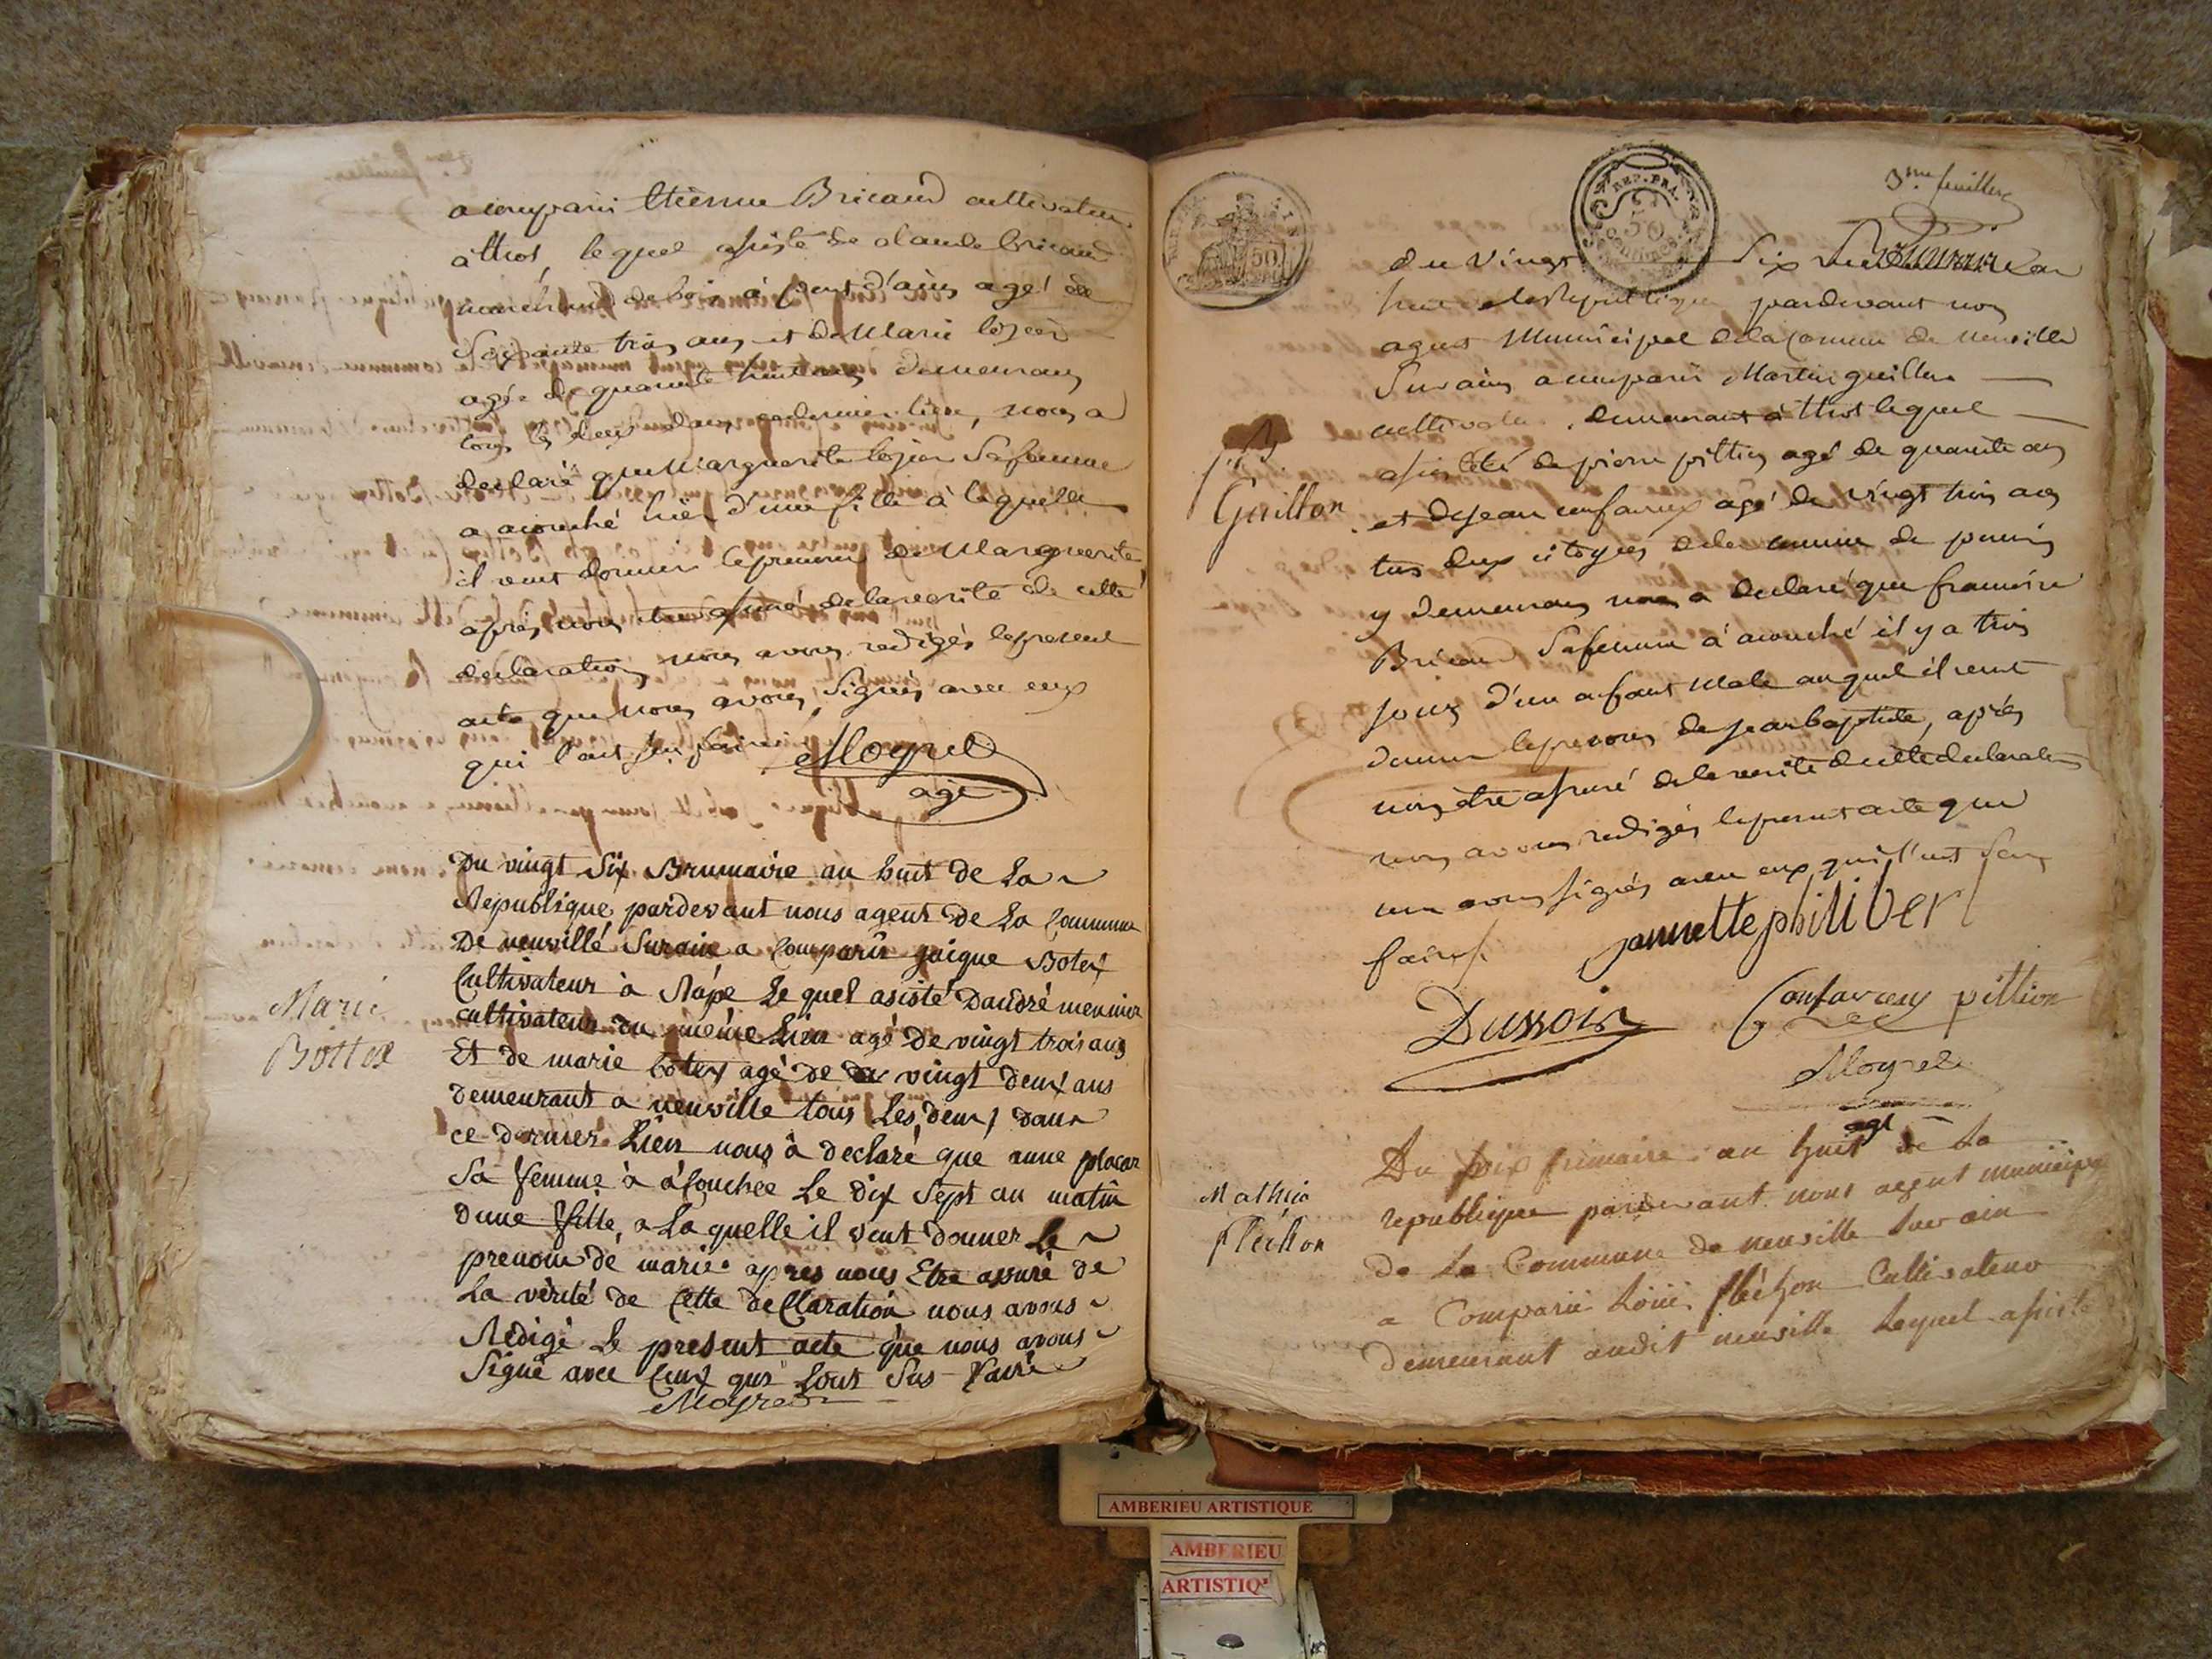 a comparu Etienne Bricaud cultivateur
à thol, lequel assisté de claude bricaud
marchand de bois à pont d'ain agé de
Soixante trois ans et de Marie
agée de quarante huit ans demeurans
tous les deux dans ce dernier lieu, nous a
declaré que Marguerite Sa femme
a acouché hier d'une fille à laquelle
il veut donner le prenom de Marguerite
après nous être assuré de la verité de cette
declaration nous avons redigés le present
acte que nous avons Signés avec eux
qui l'ont Sçu faire
Moyret
agt
Marie
Bottex
Du vingt Six Brumaire an huit de La
Republique pardevant nous agent de La Commune
De neuville Surain a Comparûs jaique Botex
Cultivateur à Rape Le quel asisté Dandré meunier
cultivateur du même Lieu agé De vingt trois ans
Et de marie botex agé de vingt deux ans
demeurant a neuville tous Les deux dans
ce dernier Lieu nous à declaré que anne placar
Sa femme à acouchée Le dix Sept au matin
dune fille, a La quelle il veut donner Le
prenom de marie après nous Etre assuré de
La vérité de Cette declaration nous avons
Rédigé Le present acte que nous avons
Signé avec Ceux qui Lont Sus faire
Moyret
3me feuillet
REP. FRA.
50
CENTIMES
50
du vingt Six Brumaire an
huit de la Republique pardevant nous
agent Municipal de la Commune de neuville
Surain a comparu Martin guillon
cultivateur demeurant à thol lequel
assisté de pierre pittion agé de quarante ans
et de jean confavreux agé de vingt trois ans
tous deux citoyens de la commune de
y demeurans nous a declaré que francoise
Bricaud Sa femme à acouché il y a trois
jours d'un enfant Male auquel il veut
donner le prenom de jean baptiste, après
nous être assuré de la verité de cette declaration
nous avons redigés le present acte que
nous avons signés avec eux qui l'ont Sçu
faire
Guillon
jannette philiber
Dussoir
Confavreux pittion
Moyret
agt
Mathieu
flechon
Du frimaire an huit de La
republique pardevant nous agent municipal
de La Commune de neuville sur ain
a Comparu Loüis fléchon Cultivateur
demeurant audit neuville Lequel assisté
AMBERIEU ARTISTIQUE
AMBERIEU
ARTISTIQ